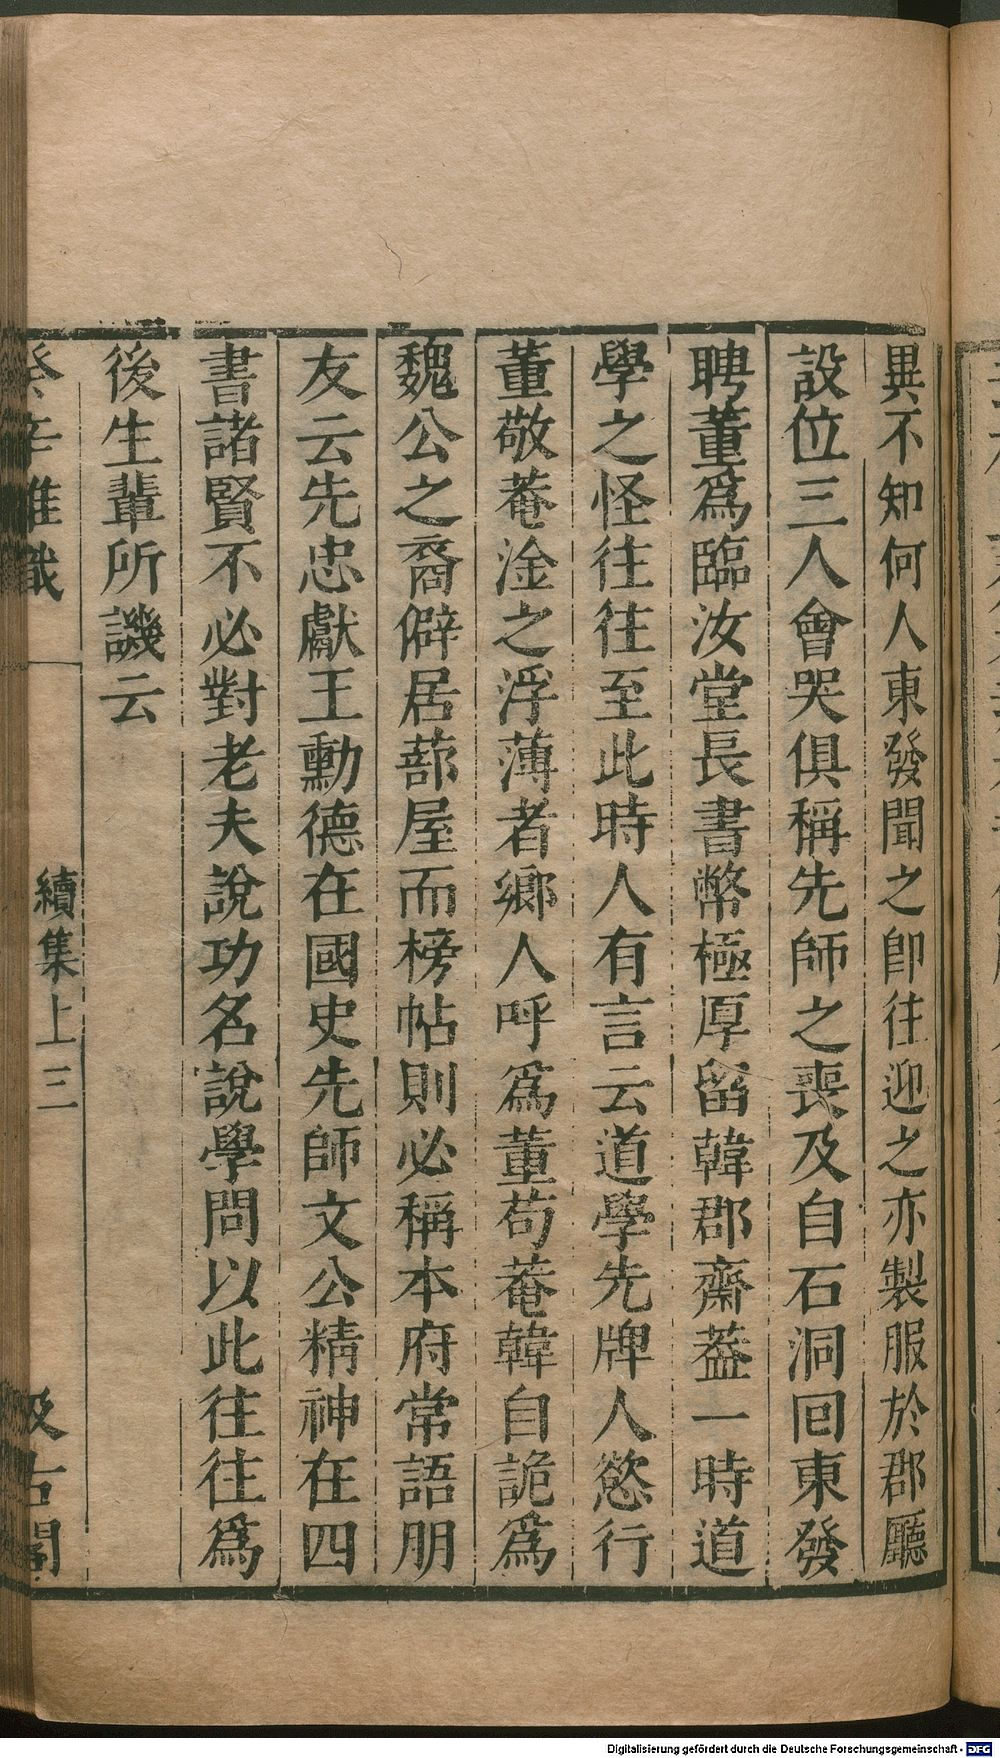 異不知何人東發聞之卽往迎之亦製服於郡廳
設位三人會哭俱稱先師之喪及自石洞回東發
聘董爲臨汝堂長書幣極厚留韓郡齋葢一時道
學之怪往往至此時人有言云道學先牌人慾行
董敬菴淦之浮薄者鄉人呼爲董苟菴韓自詭爲
魏公之裔僻居蔀屋而榜帖則必稱本府常語朋
友云先忠獻王勳德在國史先師文公精神在四
書諸賢不必對老夫說功名說學問以此往往爲
後生輩所譏云
癸辛雜識 續集上 三 汲古閣
Digitalisierung gefördert durch die Deutsche Forschungsgemeinschaft - DFG